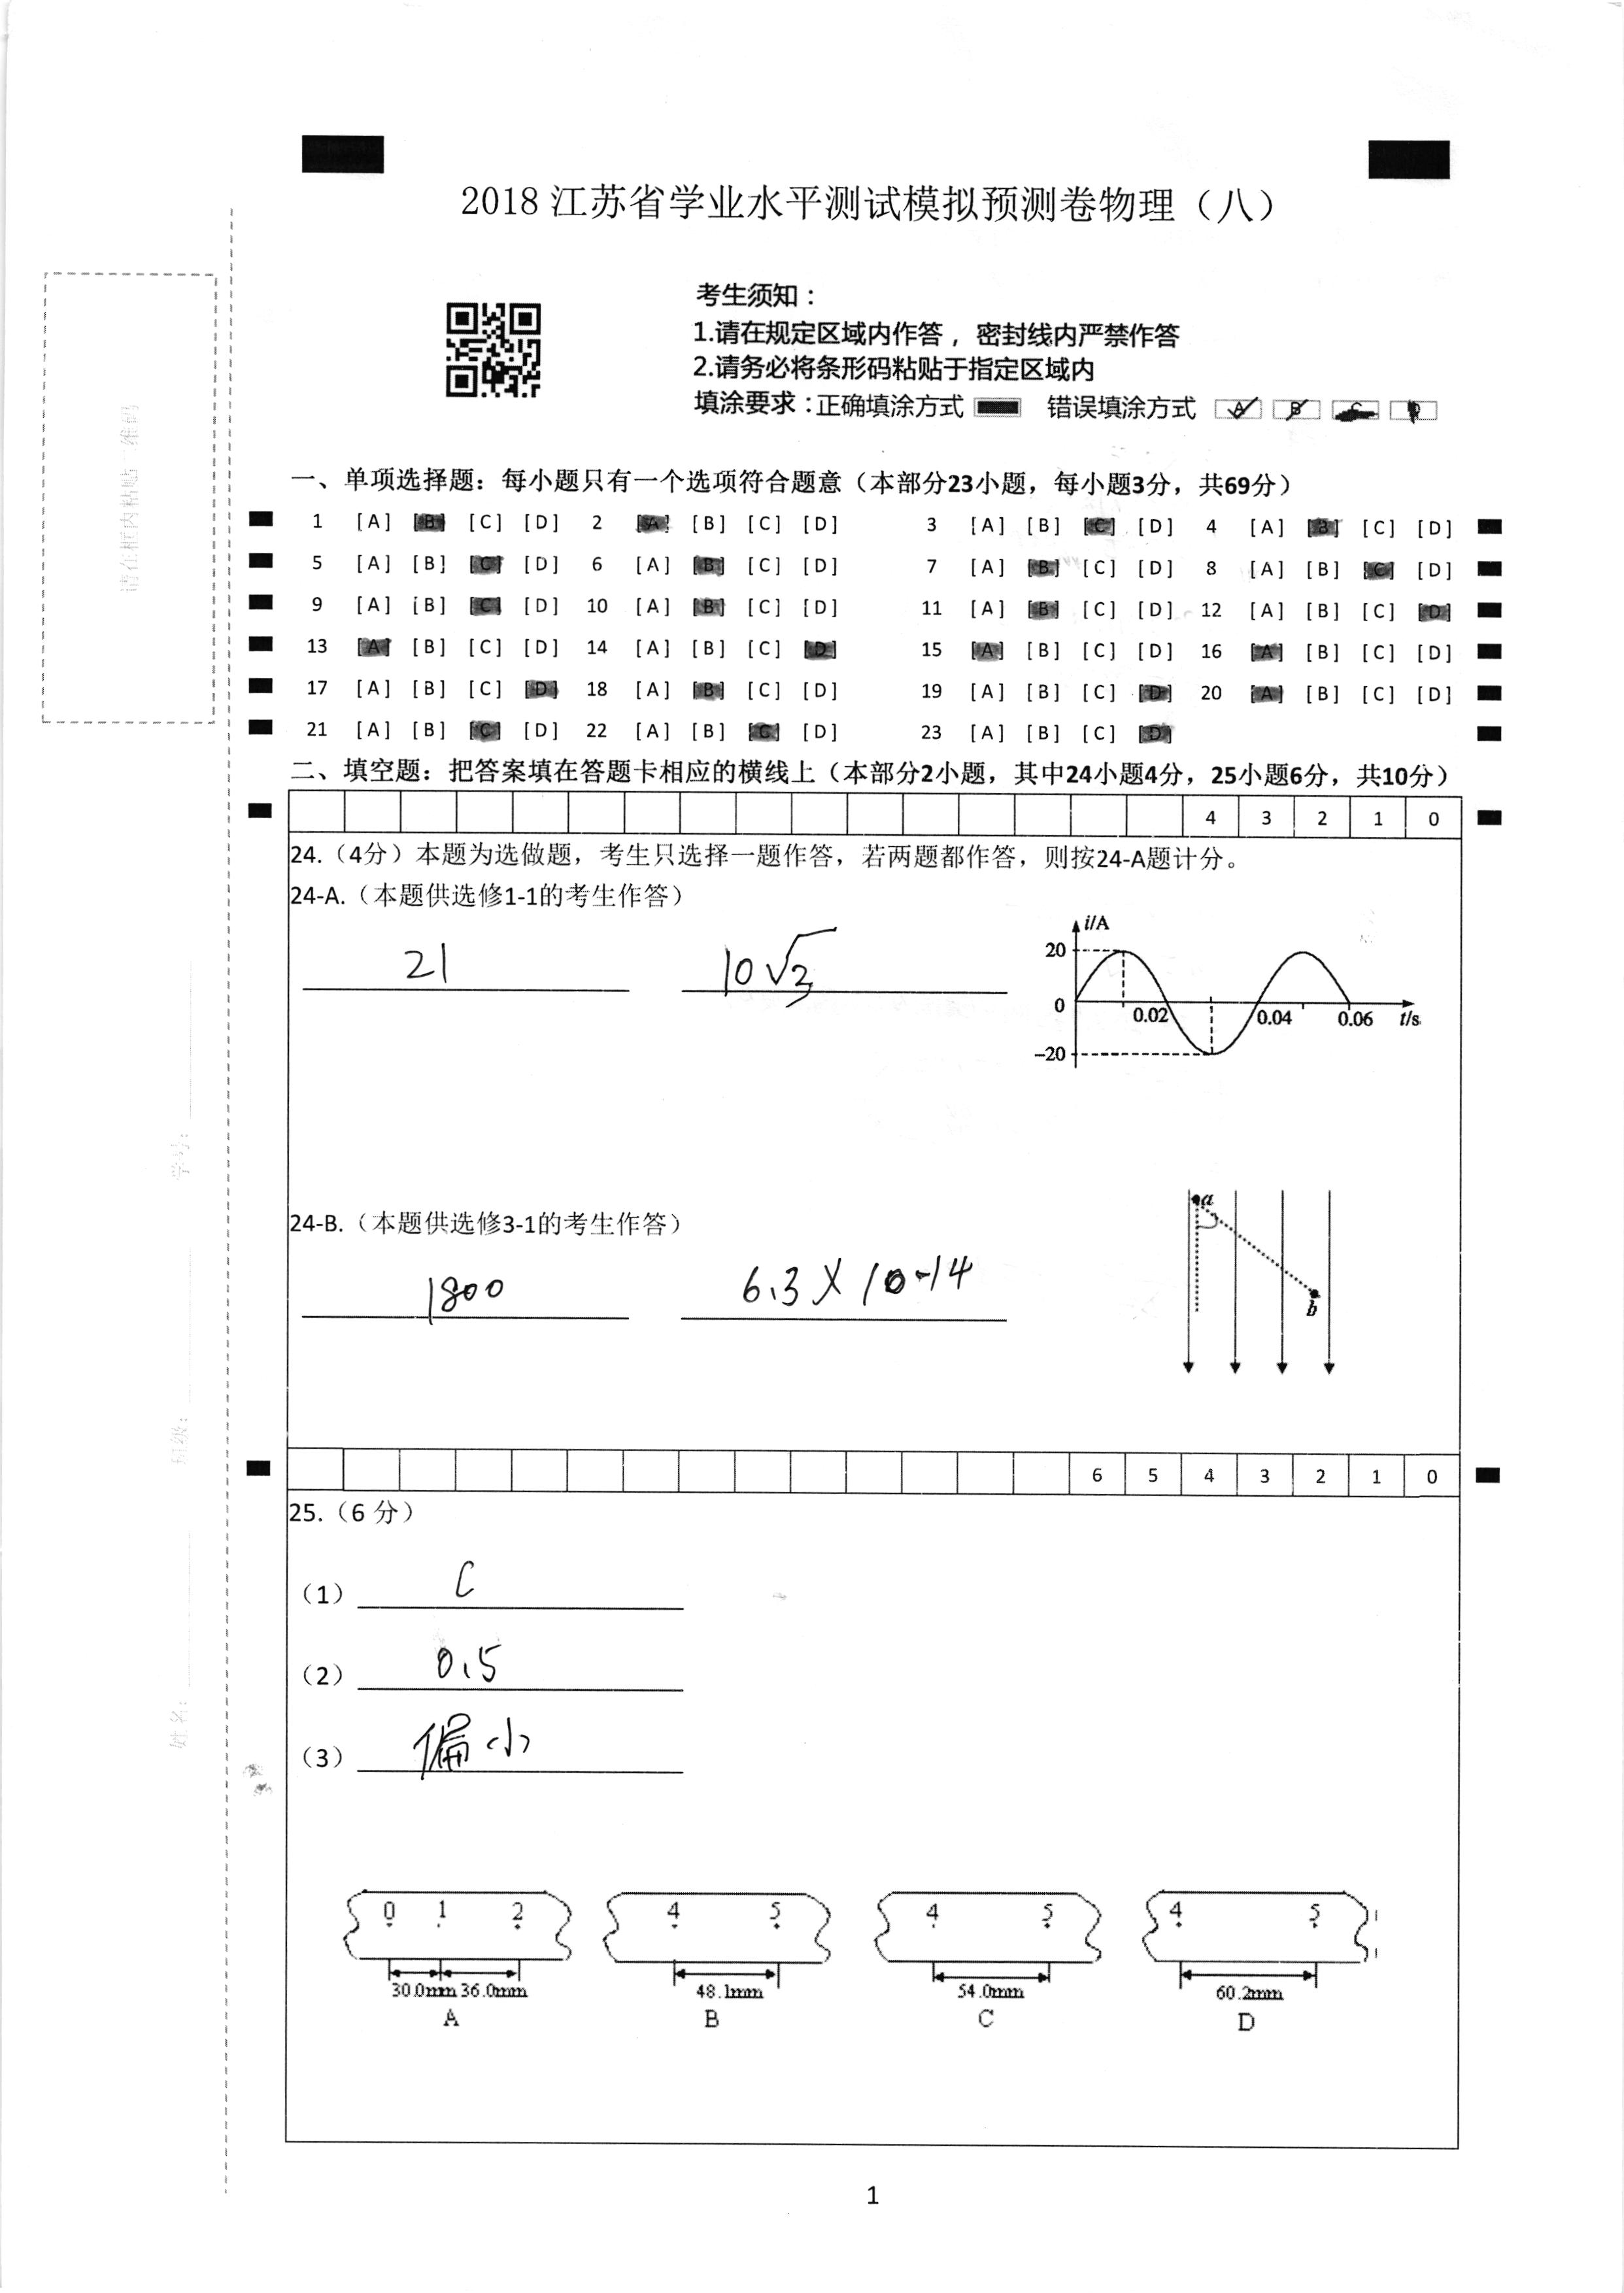 2018江苏省学业水平测试模拟预测卷物理（八）
考生须知：
1.请在规定区域内作答，密封线内严禁作答
2.请务必将条形码粘贴于指定区域内
填涂要求：正确填涂方式 错误填涂方式 A B C D
请在框内粘贴二维码
一、单项选择题：每小题只有一个选项符合题意（本部分23小题，每小题3分，共69分）
1 [A] [B] [C] [D] 2 [A] [B] [C] [D] 3 [A] [B] [C] [D] 4 [A] [B] [C] [D]
5 [A] [B] [C] [D] 6 [A] [B] [C] [D] 7 [A] [B] [C] [D] 8 [A] [B] [C] [D]
9 [A] [B] [C] [D] 10 [A] [B] [C] [D] 11 [A] [B] [C] [D] 12 [A] [B] [C] [D]
13 [A] [B] [C] [D] 14 [A] [B] [C] [D] 15 [A] [B] [C] [D] 16 [A] [B] [C] [D]
17 [A] [B] [C] [D] 18 [A] [B] [C] [D] 19 [A] [B] [C] [D] 20 [A] [B] [C] [D]
21 [A] [B] [C] [D] 22 [A] [B] [C] [D] 23 [A] [B] [C] [D]
二、填空题：把答案填在答题卡相应的横线上（本部分2小题，其中24小题4分，25小题6分，共10分）
4 3 2 1 0
24.（4分）本题为选做题，考生只选择一题作答，若两题都作答，则按24-A题计分。
24-A.（本题供选修1-1的考生作答）
21 10√2
i/A
20
0 0.02 0.04 0.06 t/s
-20
学号：
24-B.（本题供选修3-1的考生作答）
1800 6.3×10-14
a
b
班级：
6 5 4 3 2 1 0
25.（6 分）
（1） C
（2） 0.5
（3） 偏小
姓名：
0 1 2 4 5 4 5 4 5
30.0mm 36.0mm 48.1mm 54.0mm 60.2mm
A B C D
1